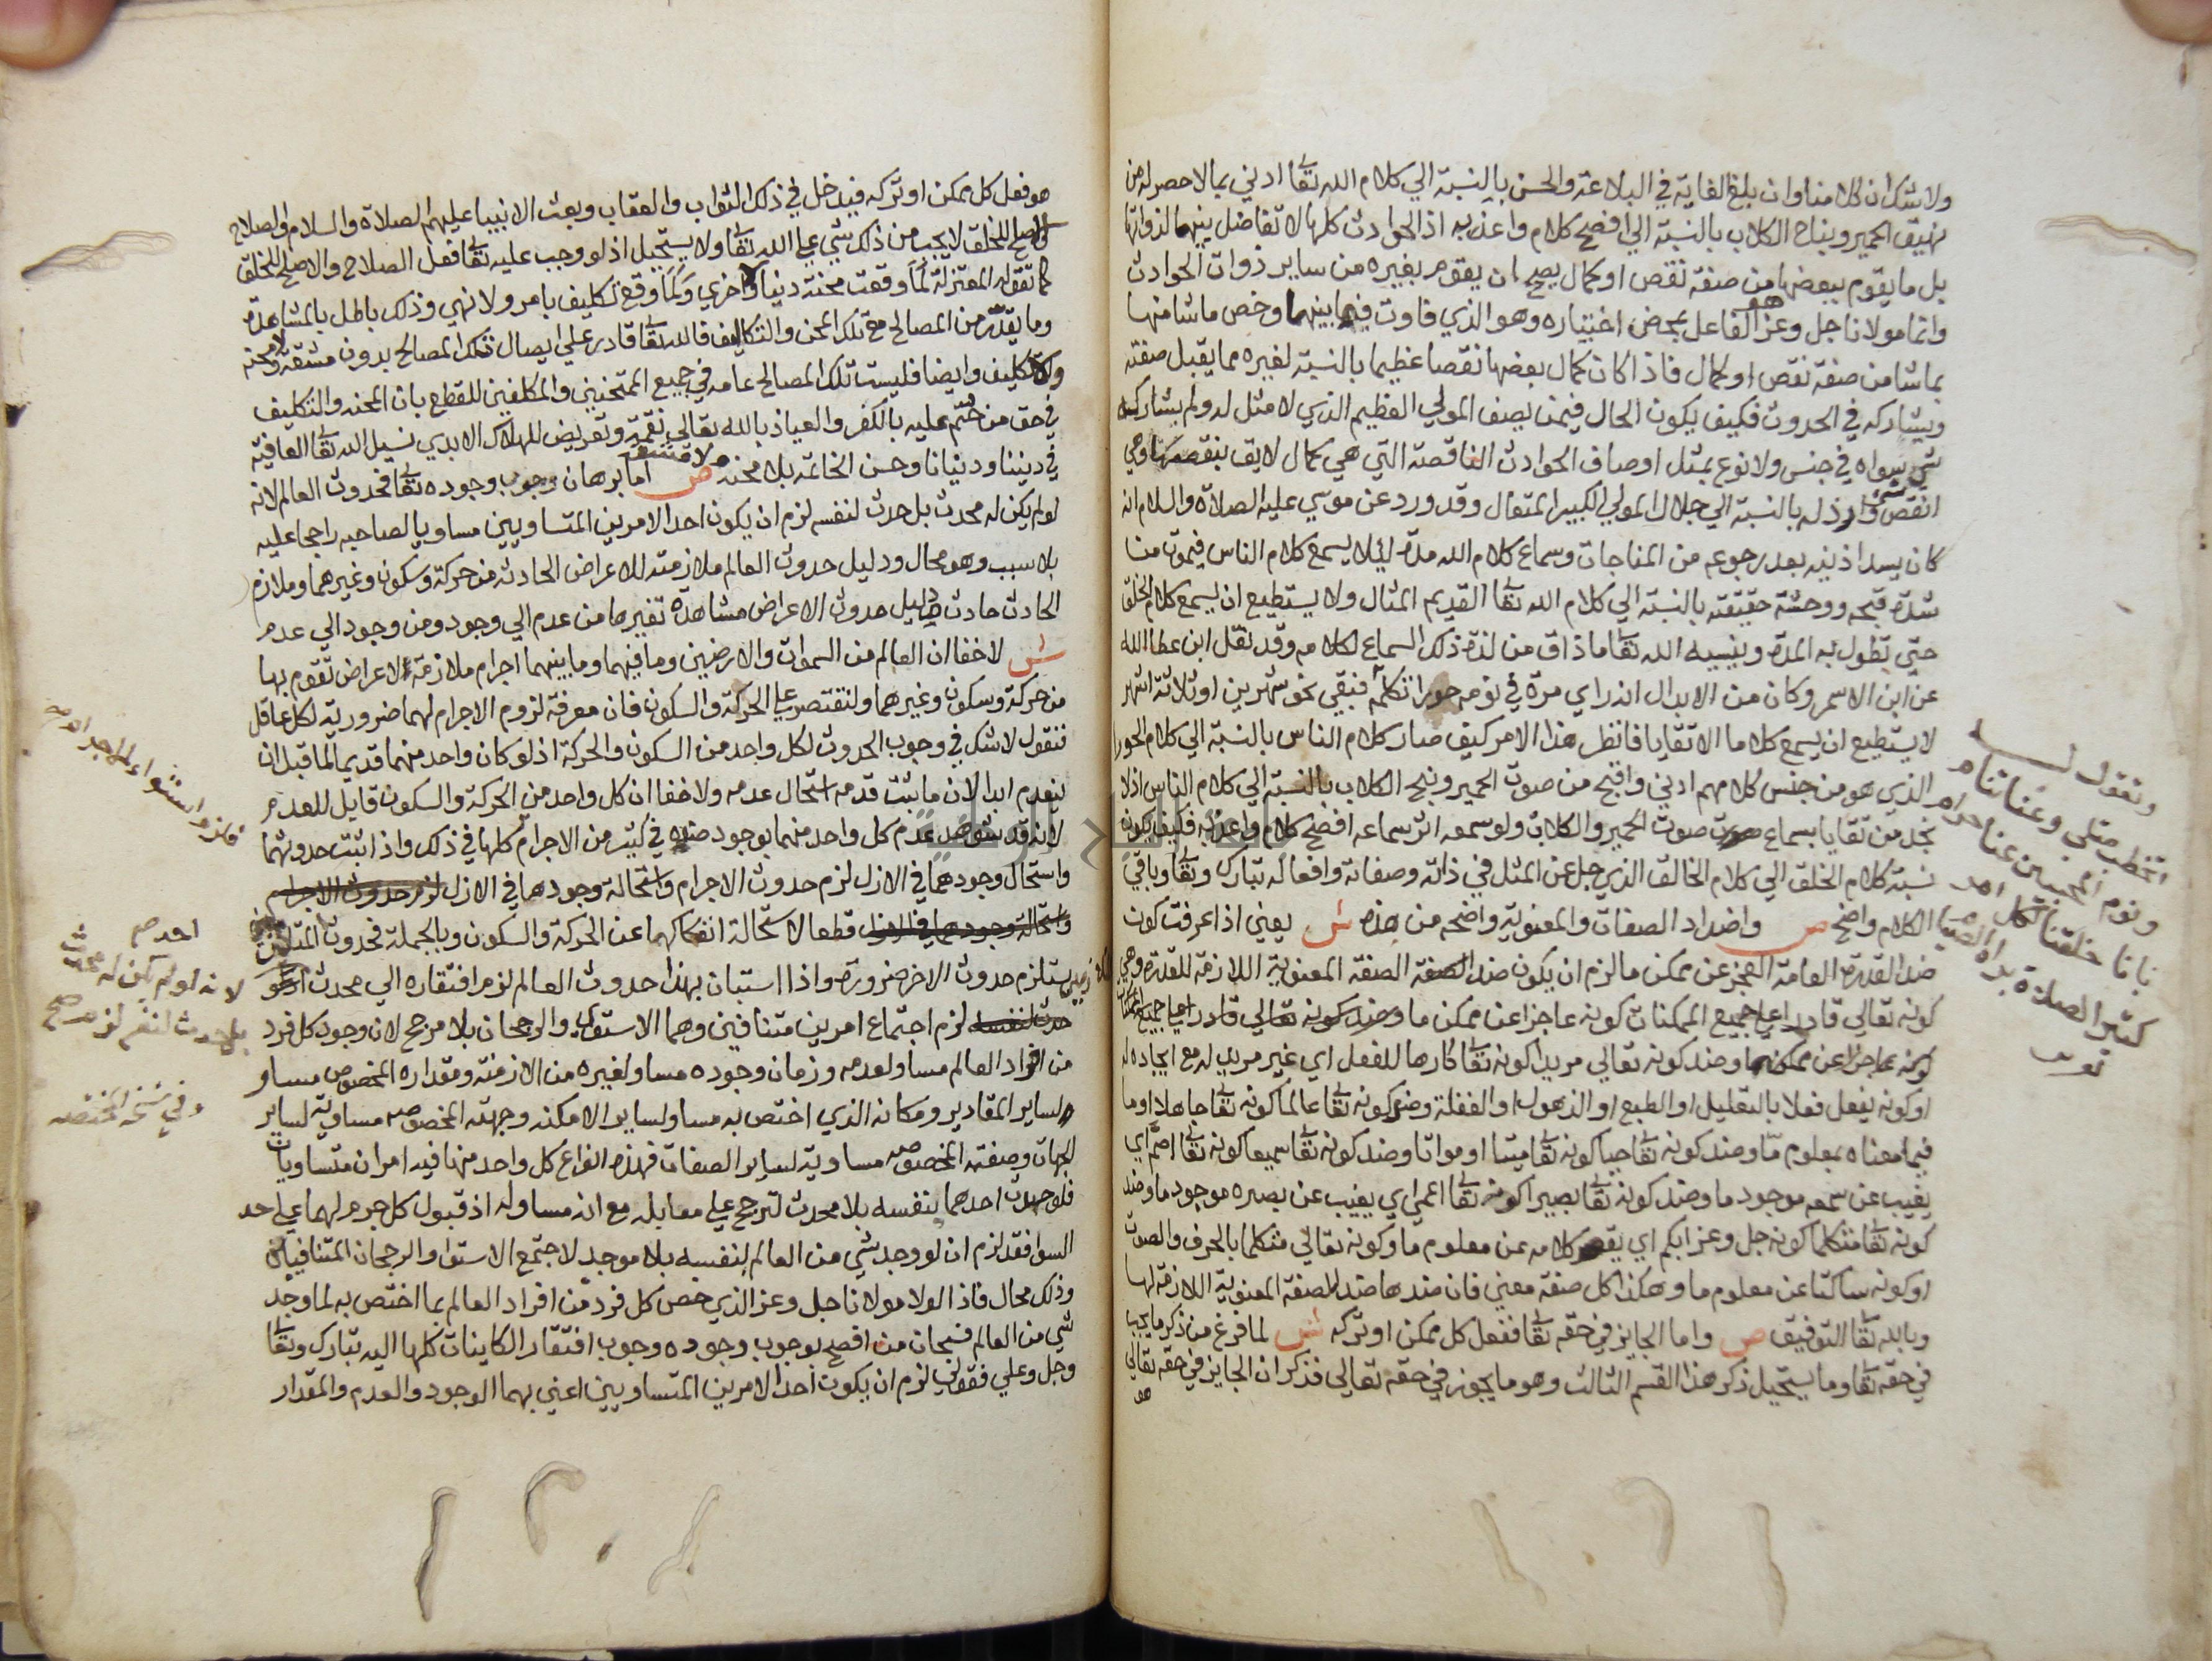 ولا شك ان كلامنا وان بلغ الغاية في البلاغة والحسن بالنسبة الي كلام الله تعا ادني بما لا حصر له من
نهيق الحمير ونباح الكلاب بالنسبة الي افصح كلام واعذبه اذ الحوادث كلها لا تفاضل بينهما لذواتها
بل ما يقوم ببعضها من صفة نقص او كمال يصح ان يقوم بغيره من ساير ذوات الحوادث
وانما مولانا جل وعز هو الفاعل بمحض اختياره وهو الذي فاوت فيما بينهما وخص ما شا منها
بما شا من صفة نقص او كمال فاذا كان كمال بعضها نقصا عظيما بالنسبة لغيره مما يقبل صفته
ويشاركه في الحدوث فكيف يكون الحال فيمن يصف المولي العظيم الذي لا مثل له ولم يشاركه
شي سواه في جنس ولا نوع بمثل اوصاف الحوادث الناقصة التي هي كمال لايق بنقصها وهي
انقص شي وارذله بالنسبة الي جلال المولي الكبير المتعال وقد ورد عن موسي عليه الصلاة والسلام انه
كان يسد اذنيه بعد رجوعه من المناجات وسماع كلام الله مدة ليلا يسمع كلام الناس فيموت من
شدة قبحه ووحشة حقيقته بالنسبة الي كلام الله تعا القديم المثال ولا يستطيع ان يسمع كلام الخلق
حتي تطول به المدة وينسيه الله تعا ما ذاق من لذة ذلك السماع لكلامه وقد نقل ابن عطا الله
عن ابن الاسمر وكان من الابدال انه راي مرة في نومه حورا تكلمه فبقي نحو شهرين او ثلاثة اشهر
لا يستطيع ان يسمع كلاما الا تقايا فانظر هذا الامر كيف صار كلام الناس بالنسبة الي كلام الحورا
الذي هو من جنس كلامهم ادني واقبح من صوت الحمير ونبح الكلاب بالنسبة الي كلام الناس اذ لا
نجد من تقايا بسماع صوت الحمير والكلاب ولو سمعه اثر سماعه افصح كلام واعذبه فكيف يكون
نسبة كلام الخلق الي كلام الخالق الذي جل عن المثل في ذاته وصفاته وافعاله تبارك وتعا وباقي
الكلام واضح ص واضداد الصفات والمعنوية واضحه من هذه ش يعني اذا عرفت كون
ضد القدرة العامة العجز عن ممكن ما لزم ان يكون ضد الصفة المعنوية اللازمة للقدرة وهي
كونه تعالي قادرا علي جميع الممكنات كونه عاجزا عن ممكن ما وضد كونه تعالي قادرا علي جميع الممكنات
كونه عاجزا عن ممكن ما وضد كونه تعالي مريدا كونه تعا كارها للفعل اي غير مريد له مع ايجاده له
او كونه يفعل فعلا بالتعليل او الطبع او الذهول او الغفلة وضد كونه تعا عالما كونه تعا جاهلا او ما
فيما معناه بمعلوم ما وضد كونه تعا حيا كونه تعا ميتا او مواتا وضد كونه تعا سميعا كونه تعا اصم اي
يغيب عن سمعه موجود ما وضد كونه تعا بصيرا كونه تعا اعمي اي يغيب عن بصره موجود ما وضد
كونه تعا متكلما كونه جل وعز ابكم اي يقصر كلامه عن معلوم ما وكونه تعالي متكلما بالحرف والصوت
او كونه ساكتا عن معلوم ما وهكذا كل صفة معني فان ضدها ضد للصفة المعنوية اللازمة لها
وبالله تعا التوفيق ص واما الجايز في حقه تعا ففعل كل ممكن او تركه ش لما فرغ من ذكر ما يجب
في حقه تعا وما يستحيل ذكر هذا القسم الثالث وهو ما يجوز في حقه تعالي فذكر ان الجايز في حقه تعالي
هو
هو فعل كل ممكن او تركه فيدخل في ذلك الثواب والعقاب وبعث الانبيا عليهم الصلاة والسلام والصلاح
والاصلح للخلق لا يجب من ذلك شي علي الله تعا ولا يستحيل اذ لو وجب عليه تعا فعل الصلاح والاصلح للخلق
كما تقوله المعتزلة لما وقعت محنة دنيا واخري ولما وقع تكليف بامر ولا نهي وذلك باطل بالمشاهدة
وما يقدر من المصالح مع تلك المحن والتكاليف فالله تعا قادر علي ايصال تلك المصالح بدون مشقة ولا محنه
ولا تكليف وايضا فليست تلك المصالح عامه في جميع الممتحنين والمكلفين للقطع بان المحنه والتكليف
في حق من ختم عليه بالكفر والعياذ بالله تعالي نقمة وتعريض للهلاك الابدي نسيل الله تعا العافية
في ديننا ودنيانا وحسن الخاتمه بلا محنه ولا مشقة ص اما برهان وجوب وجوده تعا فحدوث العالم لانه
لو لم يكن له محدث بل حدث لنفسه لزم ان يكون احد الامرين المتساويين مساويا لصاحبه راجحا عليه
بلا سبب وهو محال ودليل حدوث العالم ملازمته للاعراض الحادثه من حركة وسكون وغيرهما وملازم
الحادث حادث ودليل حدوث الاعراض مشاهدة تغيرها من عدم الي وجود ومن وجود الي عدم
ش لا خفا ان العالم من السموات والارضين وما فيهما وما بينهما اجرام ملازمة لاعراض تقوم بها
من حركة وسكون وغيرهما ولنقتصر علي الحركة والسكون فان معرفة لزوم الاجرام لهما ضرورية لكل عاقل
فنقول لا شك في وجوب الحدوث لكل واحد من السكون والحركة اذ لو كان واحد منهما قديما لما قبل ان
ينعدم ابدا لان ما ثبت قدمه استحال عدمه ولا خفا ان كل واحد من الحركة والسكون قابل للعدم
لانه قد شوهد عدم كل واحد منهما بوجود ضده في كثير من الاجرام كلها في ذلك واذا ثبت حدوثهما
واستحال وجودهما في الازل لزم حدوث الاجرام واستحالة وجودهما في الازل لزم حدوث الاجرام
واستحالة وجودهما في الازل قطعا لاستحالة انفكاكهما عن الحركة والسكون وبالجملة فحدوث
يستلزم حدوث الاخر ضرورة واذا استبان بهذا حدوث العالم لزم افتقاره الي محدث
حدث لنفسه لزم اجتماع امرين متنافيين وهما الاستوى والرجحان بلا مرجح لان وجود كل فرد
من افراد العالم مساو لعدمه وزمان وجوده مساو لغيره من الازمنة ومقداره المخصوص مساو
لساير المقادير ومكانه الذي اختص به مساو لساير الامكنه وجهته المخصوصه مساوية لساير
الجهات وصفته المخصوصه مساوية لساير الصفات فهذه انواع كل واحد منها فيه امران متساويان
فلو حدث احدهما بنفسه بلا محدث لترجح علي مقابله مع انه مساو له اذ قبول كل جرم لهما علي حد
السوا فقد لزم ان لو وجد شي من العالم بنفسه بلا موجد لاجتمع الاستوا والرجحان المتنافيان
وذلك محال فاذا لولا مولانا جل وعز الذي خص كل فرد من افراد العالم بما اختص به لما وجد
شي من العالم فسبحان من افصح بوجوب وجوده وجوب افتقار الكاينات كلها اليه تبارك وتعا
وجل وعلي فقولي لزم ان يكون احد الامرين المتساويين اعني بهما الوجود والعدم والمقدار
لانه لو لم يكن له محدث
بل حدث لنفسه لزم صح
وفي نسخة